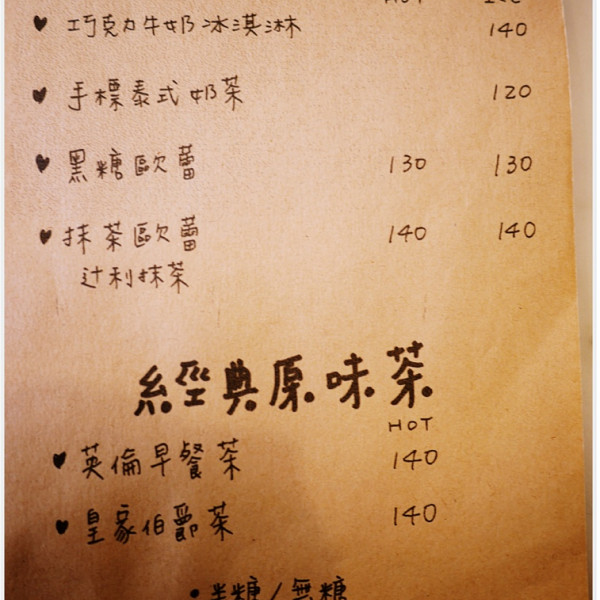 HOT ICE
巧克力牛奶冰淇淋 140
手標泰式奶茶 120
黑糖歐蕾 130 130
抹茶歐蕾 140 140
辻利抹茶
經典原味茶
HOT
英倫早餐茶 140
皇家伯爵茶 140
• 半糖/無糖